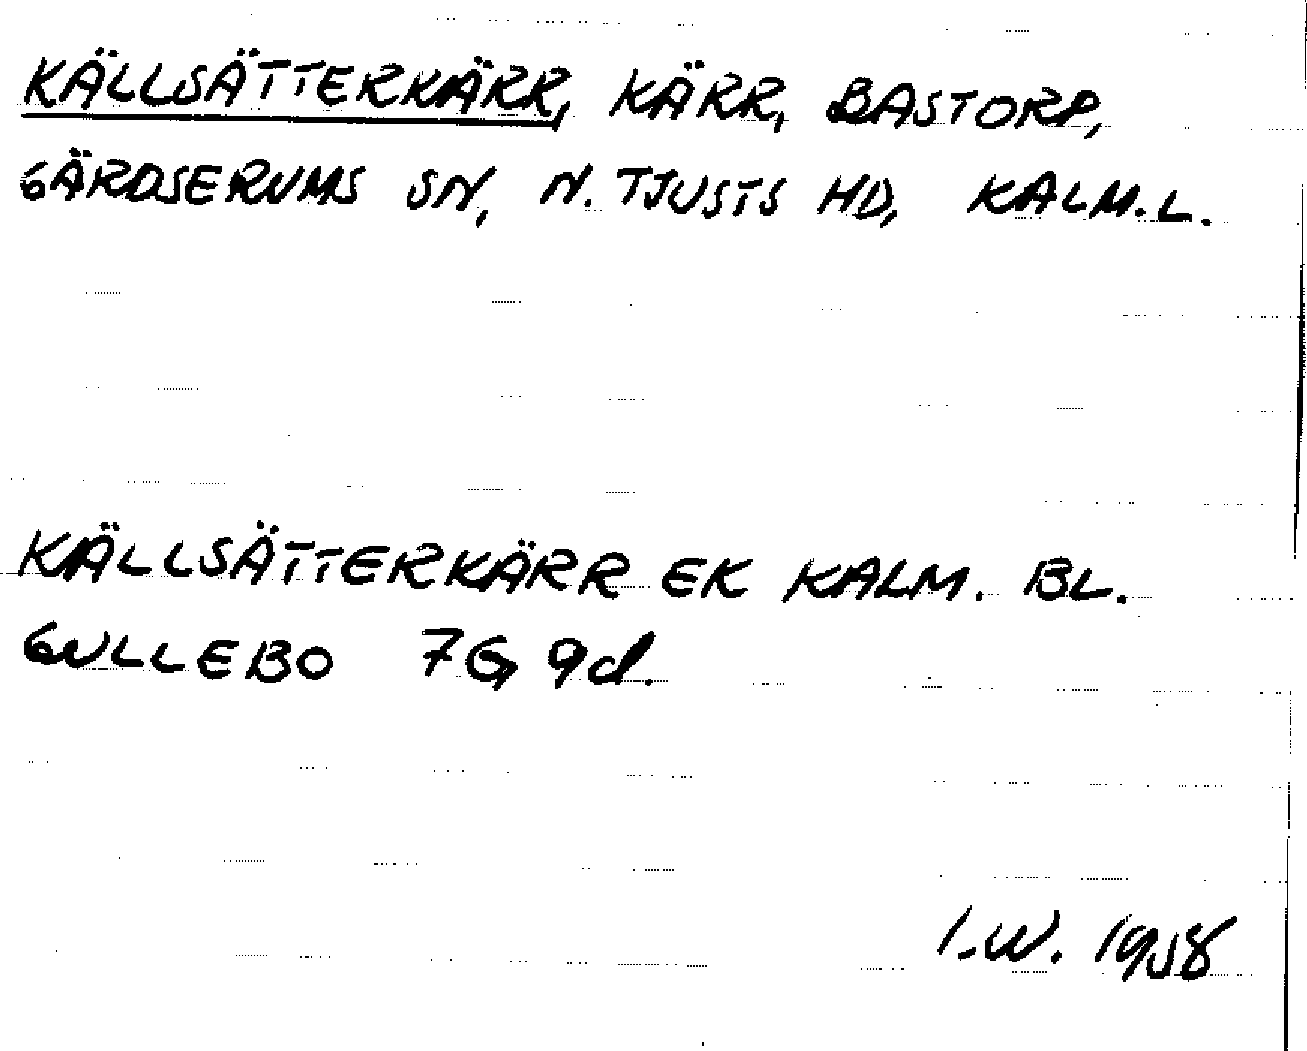 KÄLLSÄTTERKÄRR, KÄRR, BASTORP,
GÄRDSERUMS SN, N. TJUSTS HD, KALM. L.
KÄLLSÄTTERKÄRR EK KALM. BL.
GULLEBO 7G 9d.
I.W. 1958